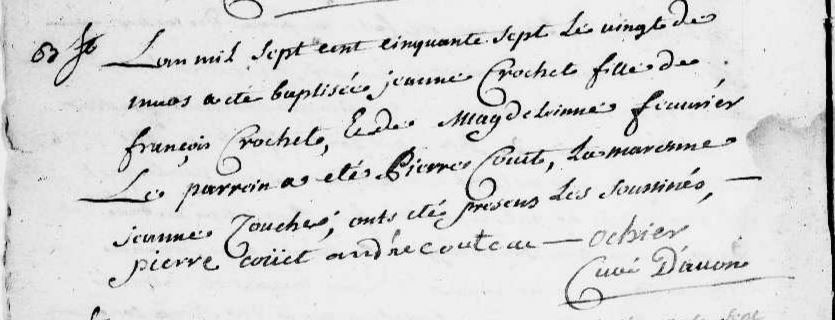 L'an mil sept cent cinquante sept Le vingt de
mars a ete baptisée jeanne Crochet fille de
françois Crochet, Et de Magdeleinne feuvrier
Le parrein a eté Pierre Couët, La mareine
jeanne Touché, onts eté presens Les soussinés, —
pierre coüet andré couteau — ochier
Curé D'avon